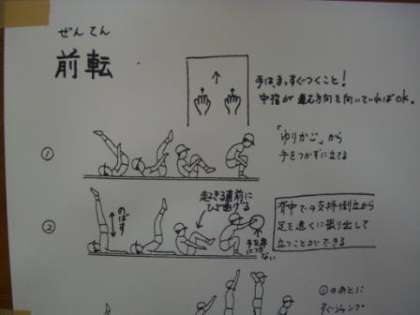 ぜんてん
前転
手は、まっすぐつくこと！
中指が進む方向を向いていればOK。
①
「ゆりかご」から
手をつかずに立てる
②
のばす
起きる直前に
ひざ曲げる
手を床に
つかない
背中での支持倒立から
足を遠くに振り出して
立つことができる
①のあとに
すぐジャンプ